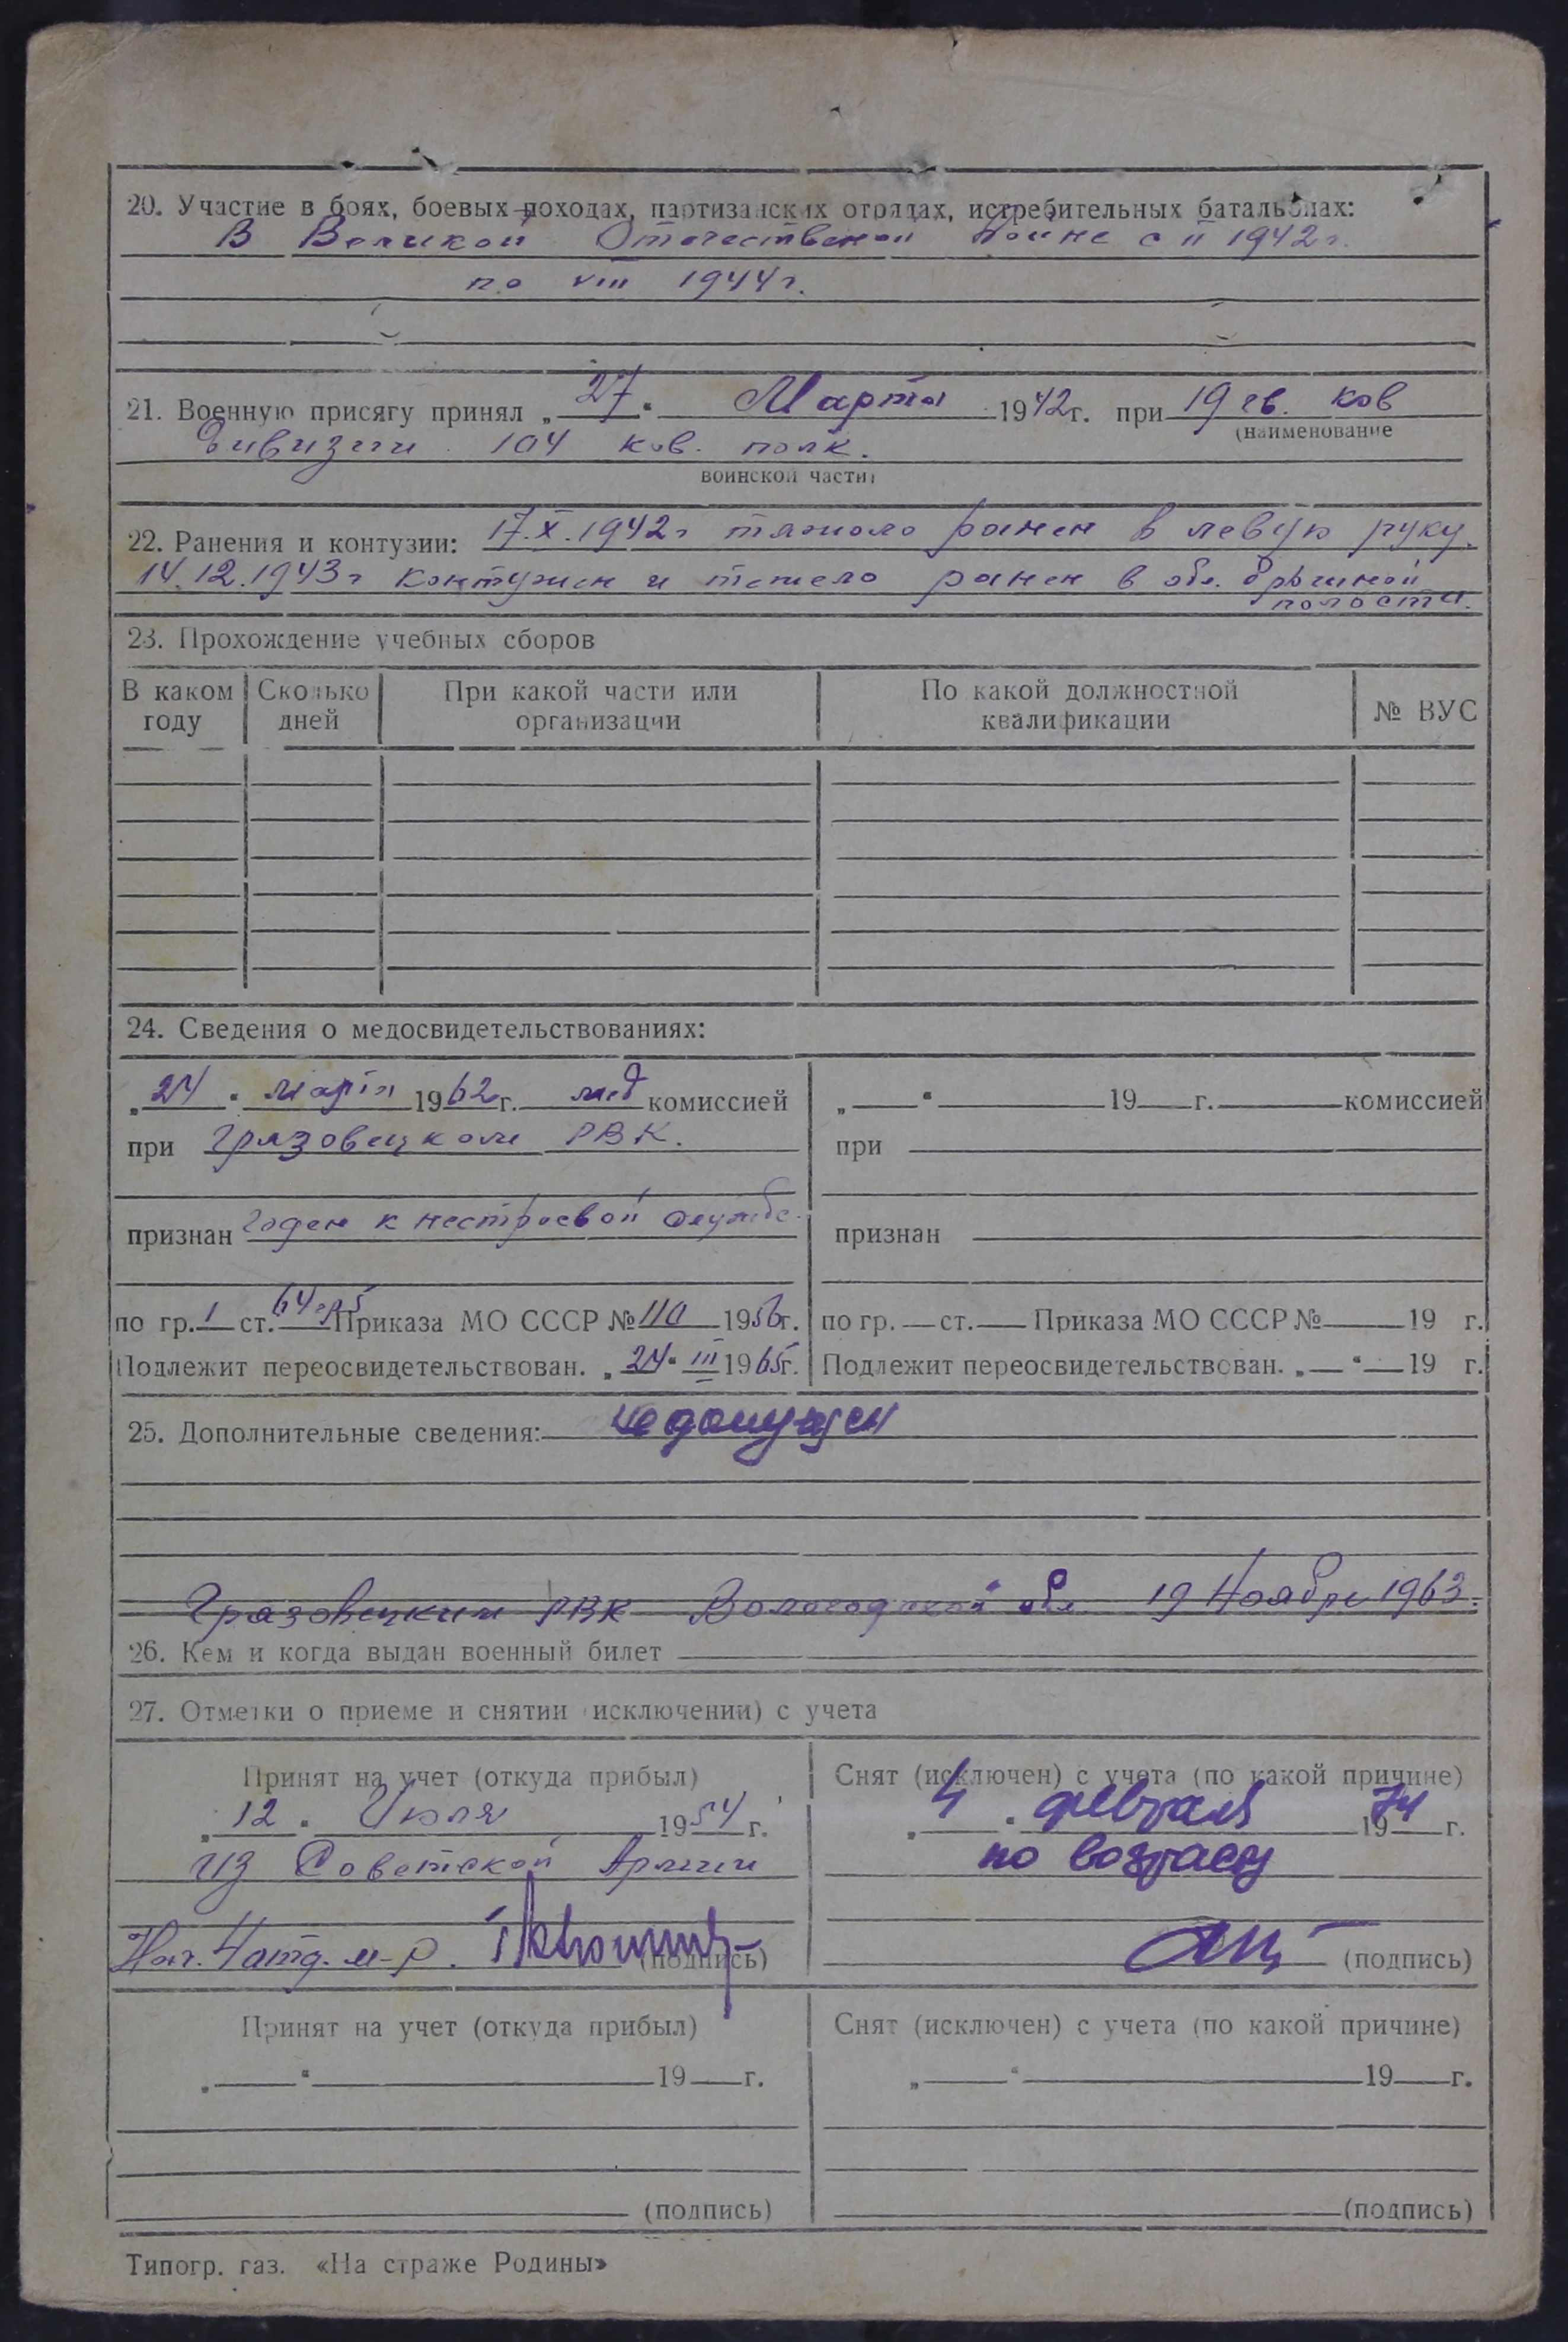 20. Участие в боях, боевых походах, партизанских отрядах, истребительных батальонах:
В Великой Отечественой Воине с II 1942г.
по VIII 1944г.
21. Военную присягу принял „27“ Марта 1942г. при 19 гв. ков
(наименование
дивизии 104 ков. полк.
воинской части)
22. Ранения и контузии: 17.X.1942г тяжоло ранен в левую руку.
14.12.1943г контужен и тежело ранен в обл. брюшной
полости.
23. Прохождение учебных сборов
В каком году Сколько дней При какой части или организации По какой должностной квалификации № ВУС
24. Сведения о медосвидетельствованиях:
„24“ марта 1962г. мед комиссией
при Грязовецком РВК.
признан годен к нестроевой службе.
по гр. I ст. 64 гр5 Приказа МО СССР № 110 1956г.
Подлежит переосвидетельствован. „24“ III 1965г.
„ “ 19 г. комиссией
при
признан
по гр. ст. Приказа МО СССР № 19 г.
Подлежит переосвидетельствован. „ “ 19 г.
25. Дополнительные сведения: не допущен
Грязовецким РВК Вологодской обл. 19 Ноября 1963.
26. Кем и когда выдан военный билет
27. Отметки о приеме и снятии (исключении) с учета
Принят на учет (откуда прибыл)
„12“ Июля 1954г.
из Советской Армии
Нач. 4 отд. м-р. (подпись)
Снят (исключен) с учета (по какой причине)
„4“ февраля 1974г.
по возрасту
(подпись)
Принят на учет (откуда прибыл)
„ “ 19 г.
(подпись)
Снят (исключен) с учета (по какой причине)
„ “ 19 г.
(подпись)
Типогр. газ. «На страже Родины»